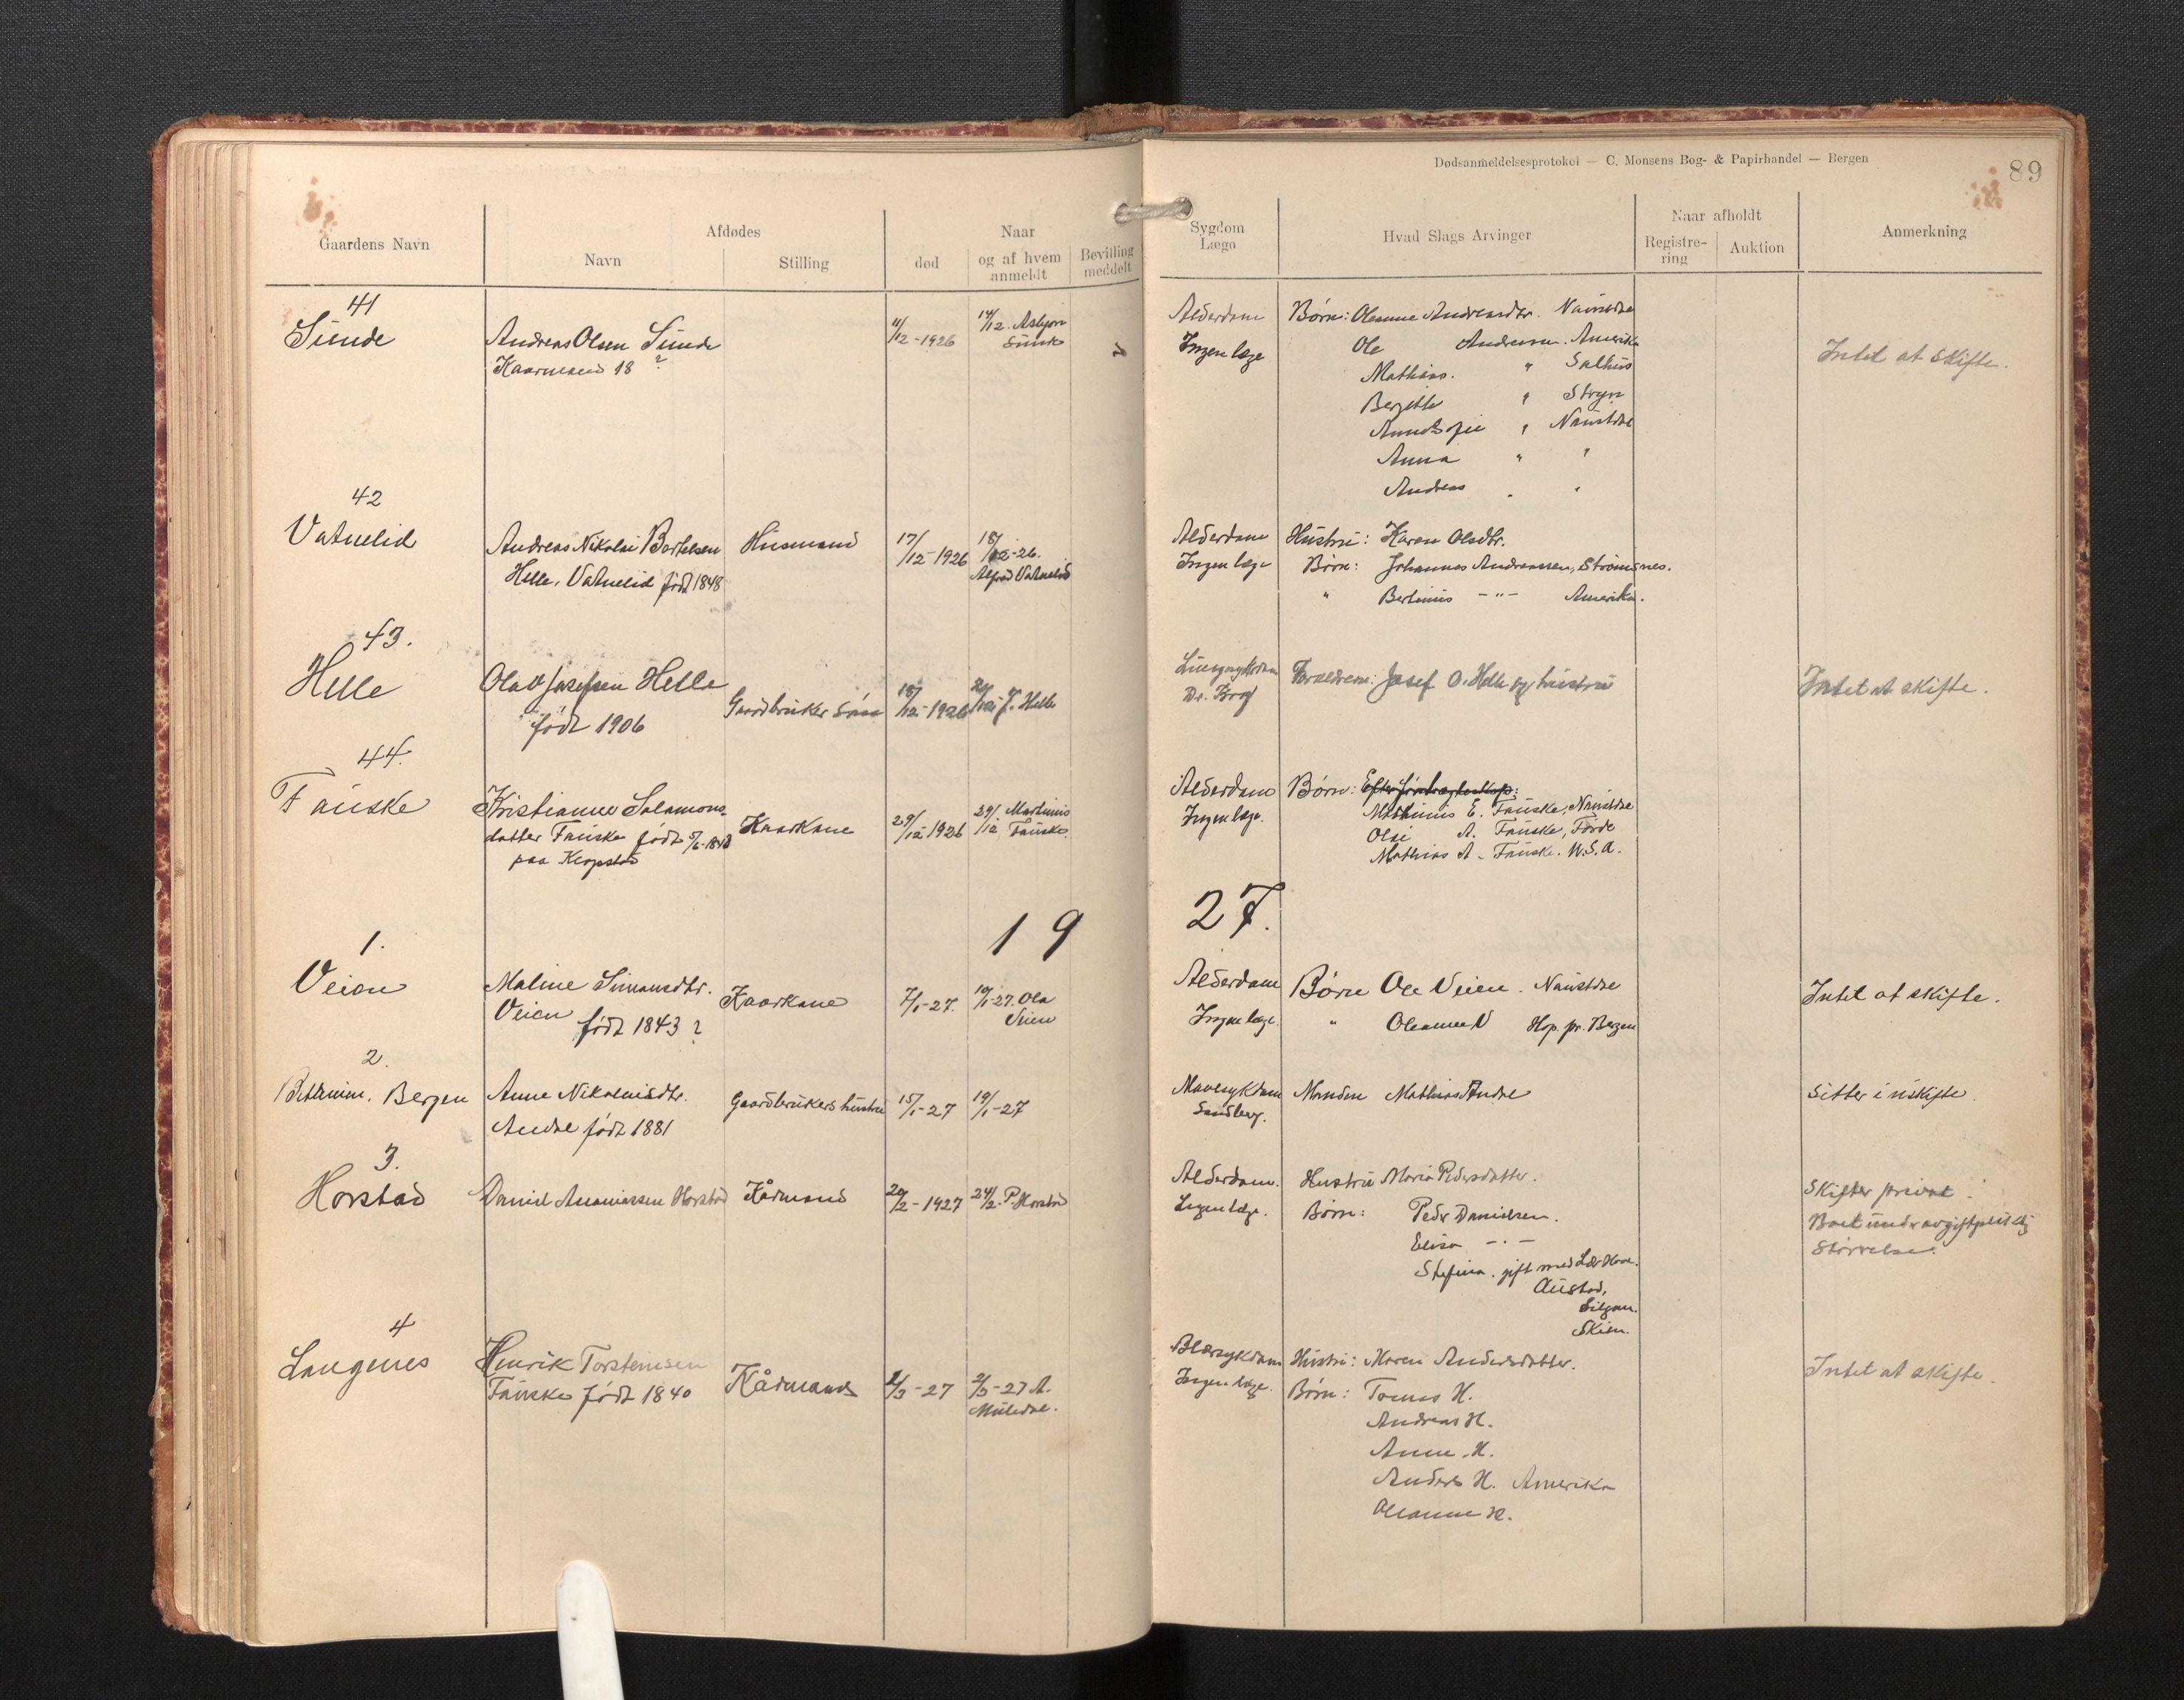 Dødsanmeldelsesprotokol — C. Monsens Bog- & Papirhandel — Bergen
89
Gaardens Navn
Afdødes
Navn
Stilling
Naar
død
og af hvem anmeldt
Bevilling meddelt
Sygdom
Læge
Hvad Slags Arvinger
Naar afholdt
Registre-
ring
Auktion
Anmerkning
41
Sunde
Andreas Olsen Sunde
Kaarmand 18 ?
11/12-1926
14/12. Asbjørn
Sunde
Alderdom
Ingen læge
Børn: Oleanne Andreasdtr. Naustdal
Ole Andreassen. Amerika
Mathias. " Salhus
Bergitte " Stryn
Anna Sofie " Naustdal
Anna " "
Andreas " "
Intet at skifte.
42
Vatnelid
Andreas Nikolai Bertelsen
Helle, Vatnelid født 1848
Husmand
17/12-1926
18/12-26.
Alfred Vatnelid
Alderdom
Ingen læge
Hustru: Karen Olsdtr.
Børn: Johannes Andreassen, Strømsnes.
" Bertinus - " - Amerika.
43.
Helle
Olav Josefsen Helle
født 1906
Gaardbruker søn
18/12-1926
J. Helle
Dr.
Foreldrene: Josef O. Helle og hustru
Intet at skifte.
44.
Fauske
Kristianne Salamons-
datter Fauske født
paa Kvopstad
Kaarkone
29/12-1926
29/12 Martinus
Fauske.
Alderdom
Ingen læge.
Børn:
Martinus E. Fauske, Naustdal
A. Fauske, Førde
Mathias A. Fauske. U.S.A.
19 27.
1.
Veien
Maline Simonsdtr.
Veien født 1843 ?
Kaarkone
7/1-27.
10/1-27. Ola
Veien
Alderdom
Ingen læge.
Børn Ole Veien. Naustdal
" Oleanne V Hop. pr. Bergen
Intet at skifte.
2.
Bergen
Anne Nikolaisdtr.
Andal født 1881
Gaardbrukers hustru
15/1-27
19/1-27
Mavesykdom
Sandberg.
Manden Mathias Andal
Sitter i uskifte.
3.
Horstad
Daniel Ananiassen Horstad
Kårmand
20/2-1927
24/2. P. Horstad
Alderdom.
Ingen læge.
Hustru Maria Pedersdatter.
Børn: Peder Danielsen.
Elisa - " -
Stefina. gift med
Austad,
Siljan.
Skien.
Skifter privat.
Boet under avgiftspliktig
Størrelse.
4
Langenes
Henrik Torsteinsen
Fauske født 1840
Kårmand
2/3-27
2/3-27 A.
Muledal.
Blæresykdom
Ingen læge.
Hustru: Maren Andersdatter.
Børn: Tomas H.
Andreas H.
Anne H.
Anders H. Amerika
Oleanne H.
Intet at skifte.